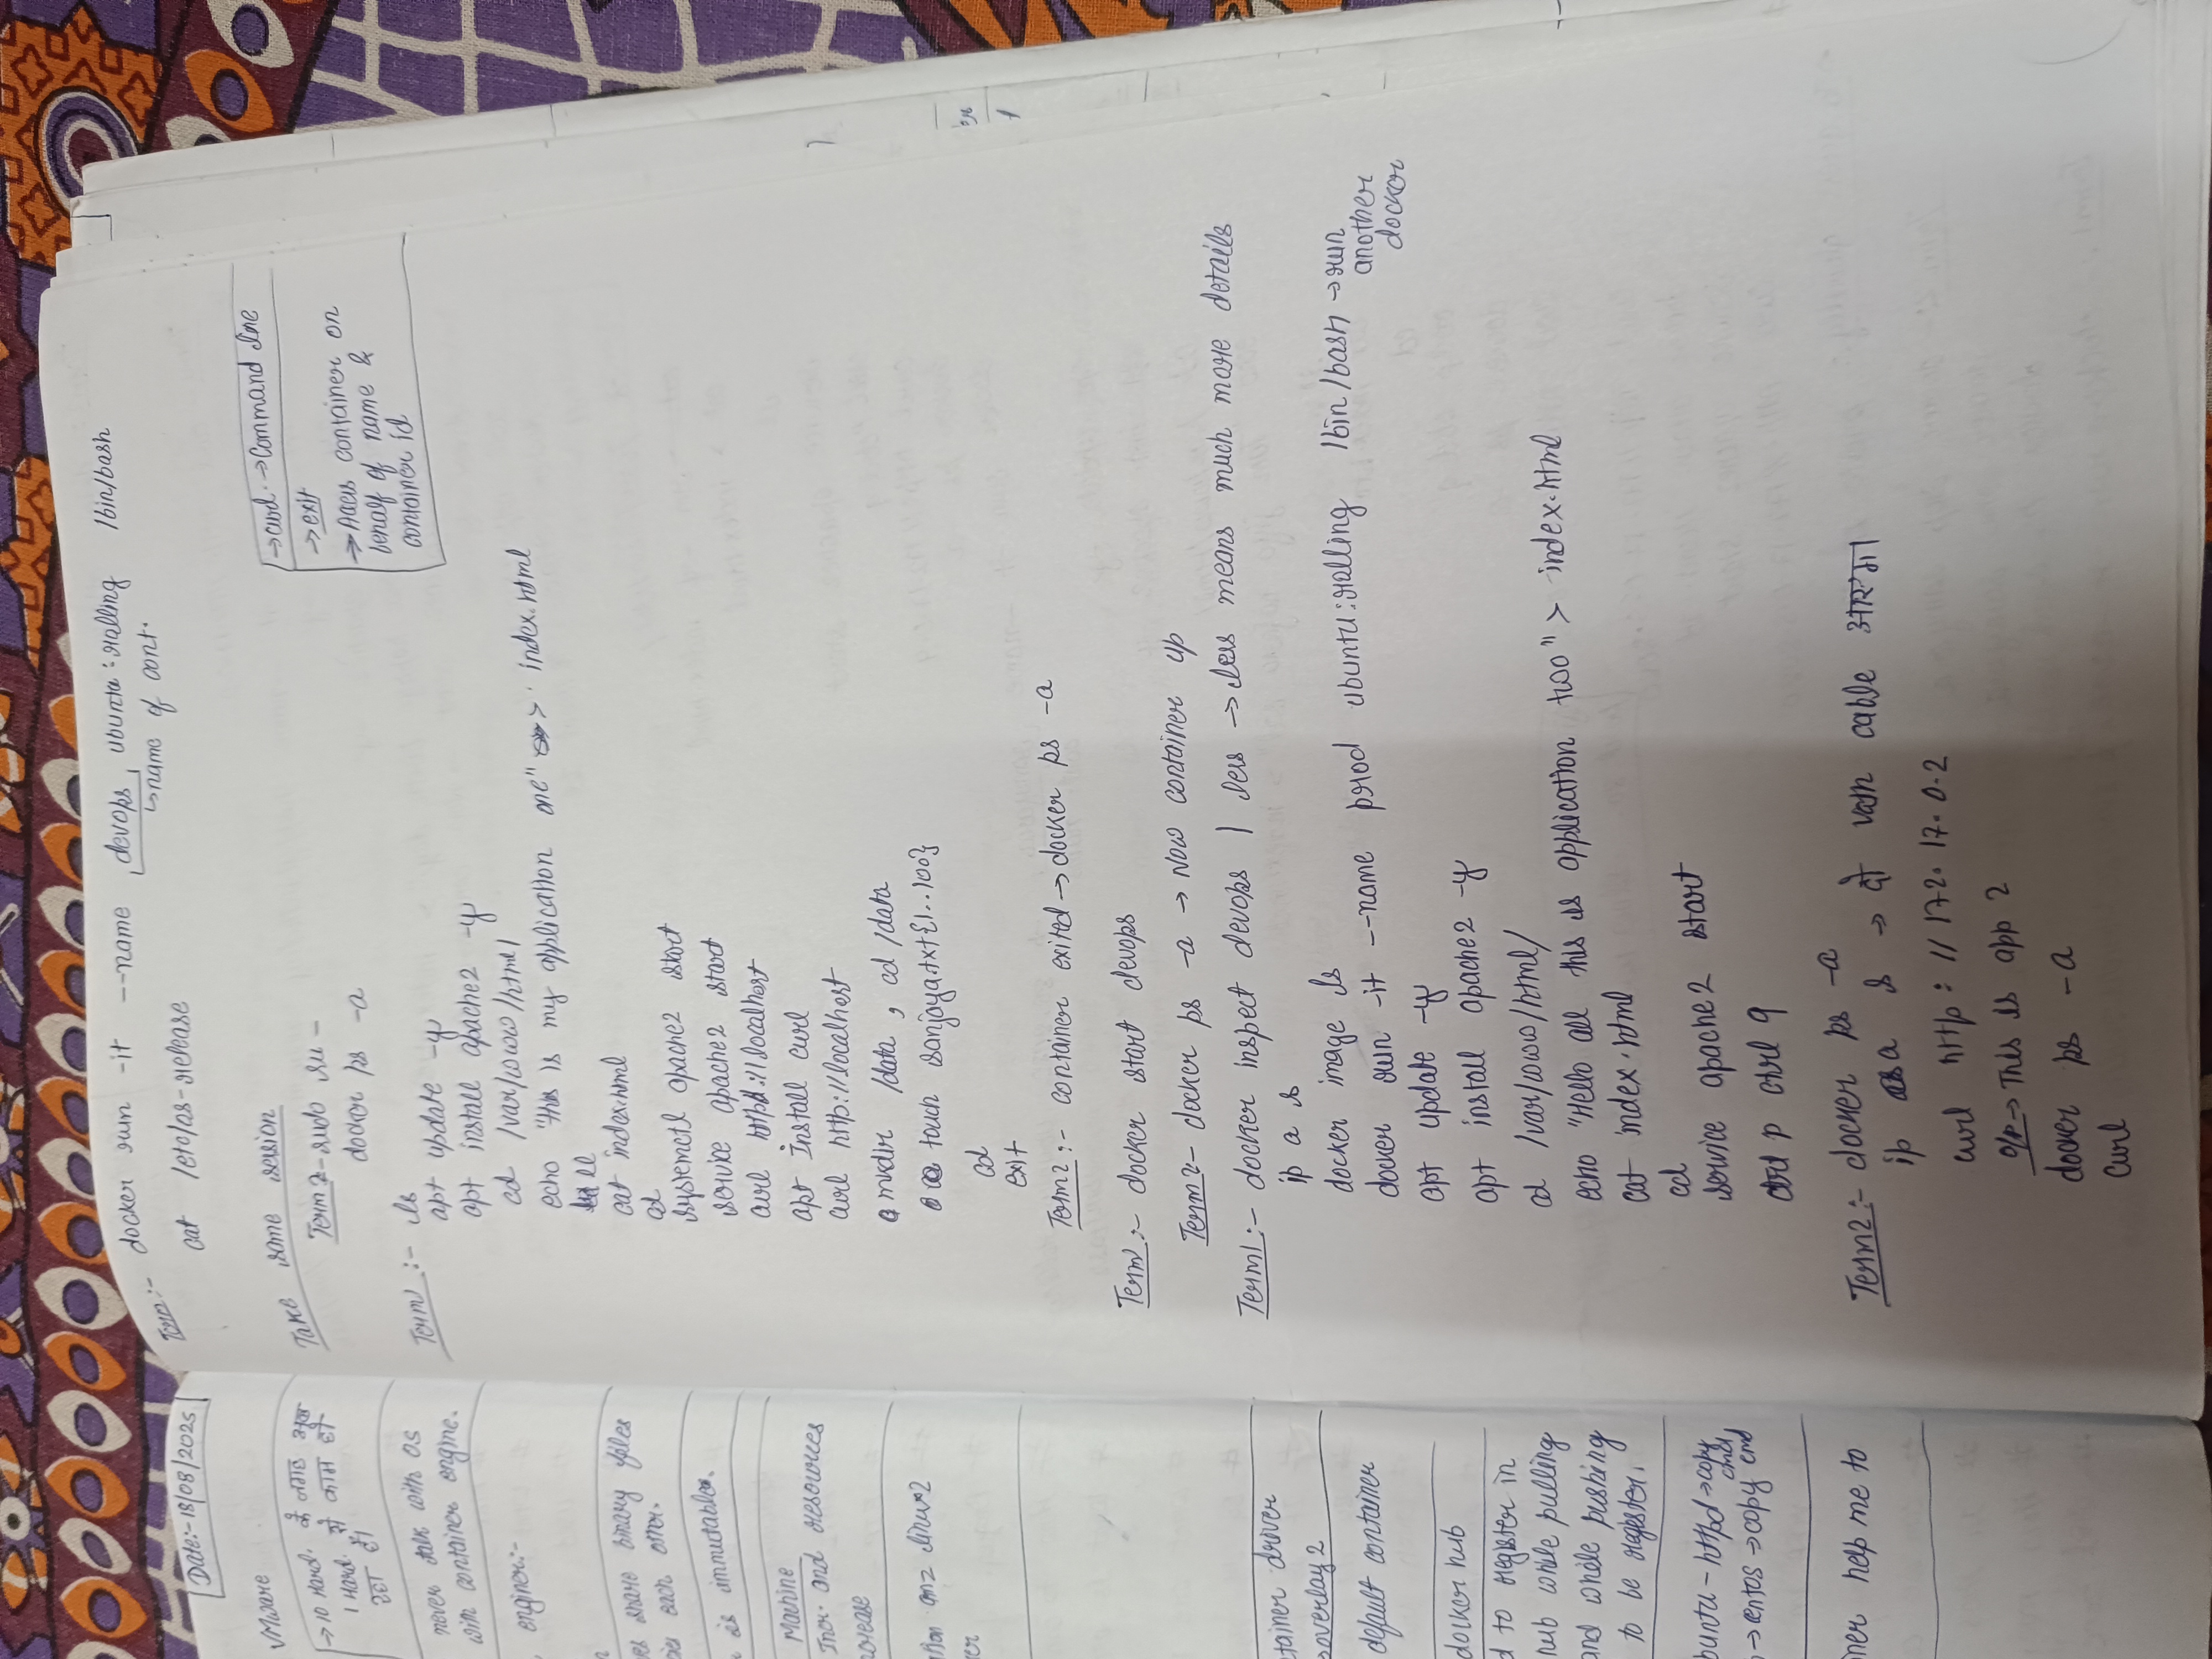 Date:-18/08/2025
VMware
→ 10 Hard. के जगह
1 Hard. से काम हो
रहा है।
never talk with OS
with container engine.
enginer:-
share binary files
each other.
is immutable.
Machine
Incr. and resources
linux 2
driver
overlay 2
default container
docker hub
to register in
hub while pulling
and while pushing
to be register.
- httpd → copy cmd
→ centos → copy cmd
help me to
Term:- docker run -it --name devops ubuntu:rolling /bin/bash
↳ name of cont.
cat /etc/os-release
Take same session
Term2- sudo su -
docker ps -a
→ curl. → Command line
→ exit
→ Acces container on
behalf of name &
container id
Term1:- ls
apt update -y
apt install apache2 -y
cd /var/www/html/
echo "this is my application one" > index.html
ll
cat index.html
cd
systemctl apache2 start
service apache2 start
curl http://localhost
apt Install curl
curl http://localhost
mkdir /data , cd /data
touch sanjaya.txt{1..100}
cd
exit
Term2:- container exited → docker ps -a
Term1:- docker start devops
Term2- docker ps -a → Now container up
Term1:- docker inspect devops | less → less means much more details
ip a s
docker image ls
docker run -it --name prod ubuntu:rolling /bin/bash → run
another
docker
apt update -y
apt install apache2 -y
cd /var/www/html/
echo "Hello all this is application two" > index.html
cat index.html
cd
service apache2 start
ctrl p ctrl q
Term2:- docker ps -a
ip a s → दो veth cable आएगा
curl http://172.17.0.2
o/p → This is app 2
docker ps -a
curl